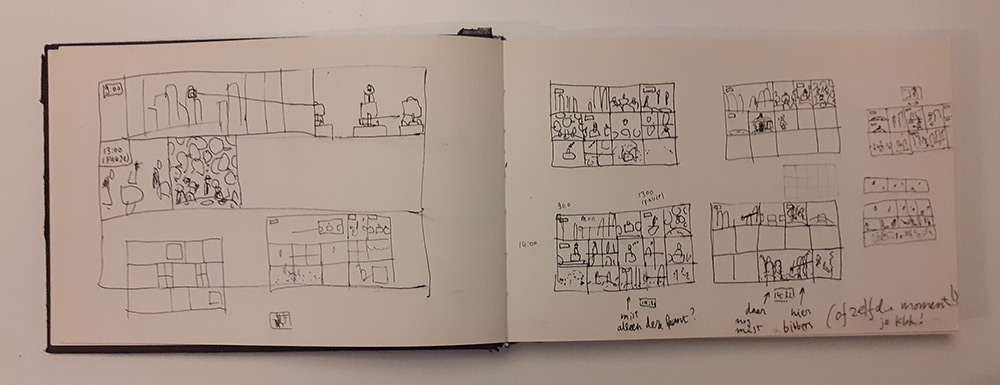 9:00
13:00
(PAUZE)
900
13:00
(PAUZE)
14:00
14:32
mist
alleen deze
daar
nog
mist
hier
(of zelfde moment!)
je klok!